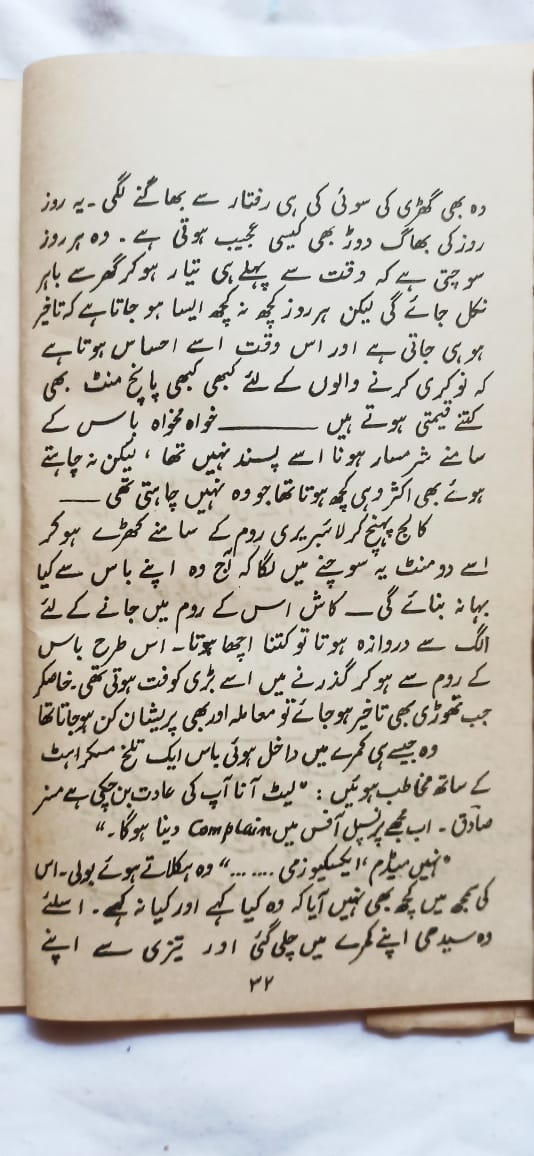 وہ بھی گھڑی کی سوئی کی ہی رفتار سے بھاگنے لگی ۔ یہ روز
روز کی بھاگ دوڑ بھی کیسی عجیب ہوتی ہے ۔ وہ ہر روز
سوچتی ہے کہ وقت سے پہلے ہی تیار ہو کر گھر سے باہر
نکل جائے گی لیکن ہر روز کچھ نہ کچھ ایسا ہو جاتا ہے کہ تاخیر
ہو ہی جاتی ہے اور اس وقت اسے احساس ہوتا ہے
کہ نوکری کرنے والوں کے لئے کبھی کبھی پانچ منٹ بھی
کتنے قیمتی ہوتے ہیں ـــــــــ خواہ مخواہ باس کے
سامنے شرمسار ہونا اسے پسند نہیں تھا ، لیکن نہ چاہتے
ہوئے بھی اکثر وہی کچھ ہوتا تھا جو وہ نہیں چاہتی تھی ـــــ
کالج پہنچ کر لائبریری روم کے سامنے کھڑے ہو کر
اسے دو منٹ یہ سوچنے میں لگا کہ آج وہ اپنے باس سے کیا
بہانہ بنائے گی ـــ کاش اس کے روم میں جانے کے لئے
الگ سے دروازہ ہوتا تو کتنا اچھا ہوتا ۔ اس طرح باس
کے روم سے ہو کر گذرنے میں اسے بڑی کوفت ہوتی تھی ۔ خاصکر
جب تھوڑی بھی تاخیر ہو جائے تو معاملہ اور بھی پریشان کن ہو جاتا تھا
وہ جیسے ہی کمرے میں داخل ہوئی باس ایک تلخ مسکراہٹ
کے ساتھ مخاطب ہوئیں : "لیٹ آنا آپ کی عادت بن چکی ہے مسز
صادق ۔ اب مجھے پرنسپل آفس میں Complain دینا ہوگا ۔"
"نہیں میڈم ، ایکسکیوزمی ......." وہ ہکلاتے ہوئے بولی ۔ اس
کی سمجھ میں کچھ بھی نہیں آیا کہ وہ کیا کہے اور کیا نہ کہے ۔ اسلئے
وہ سیدھی اپنے کمرے میں چلی گئی اور تیزی سے اپنے
۳۲